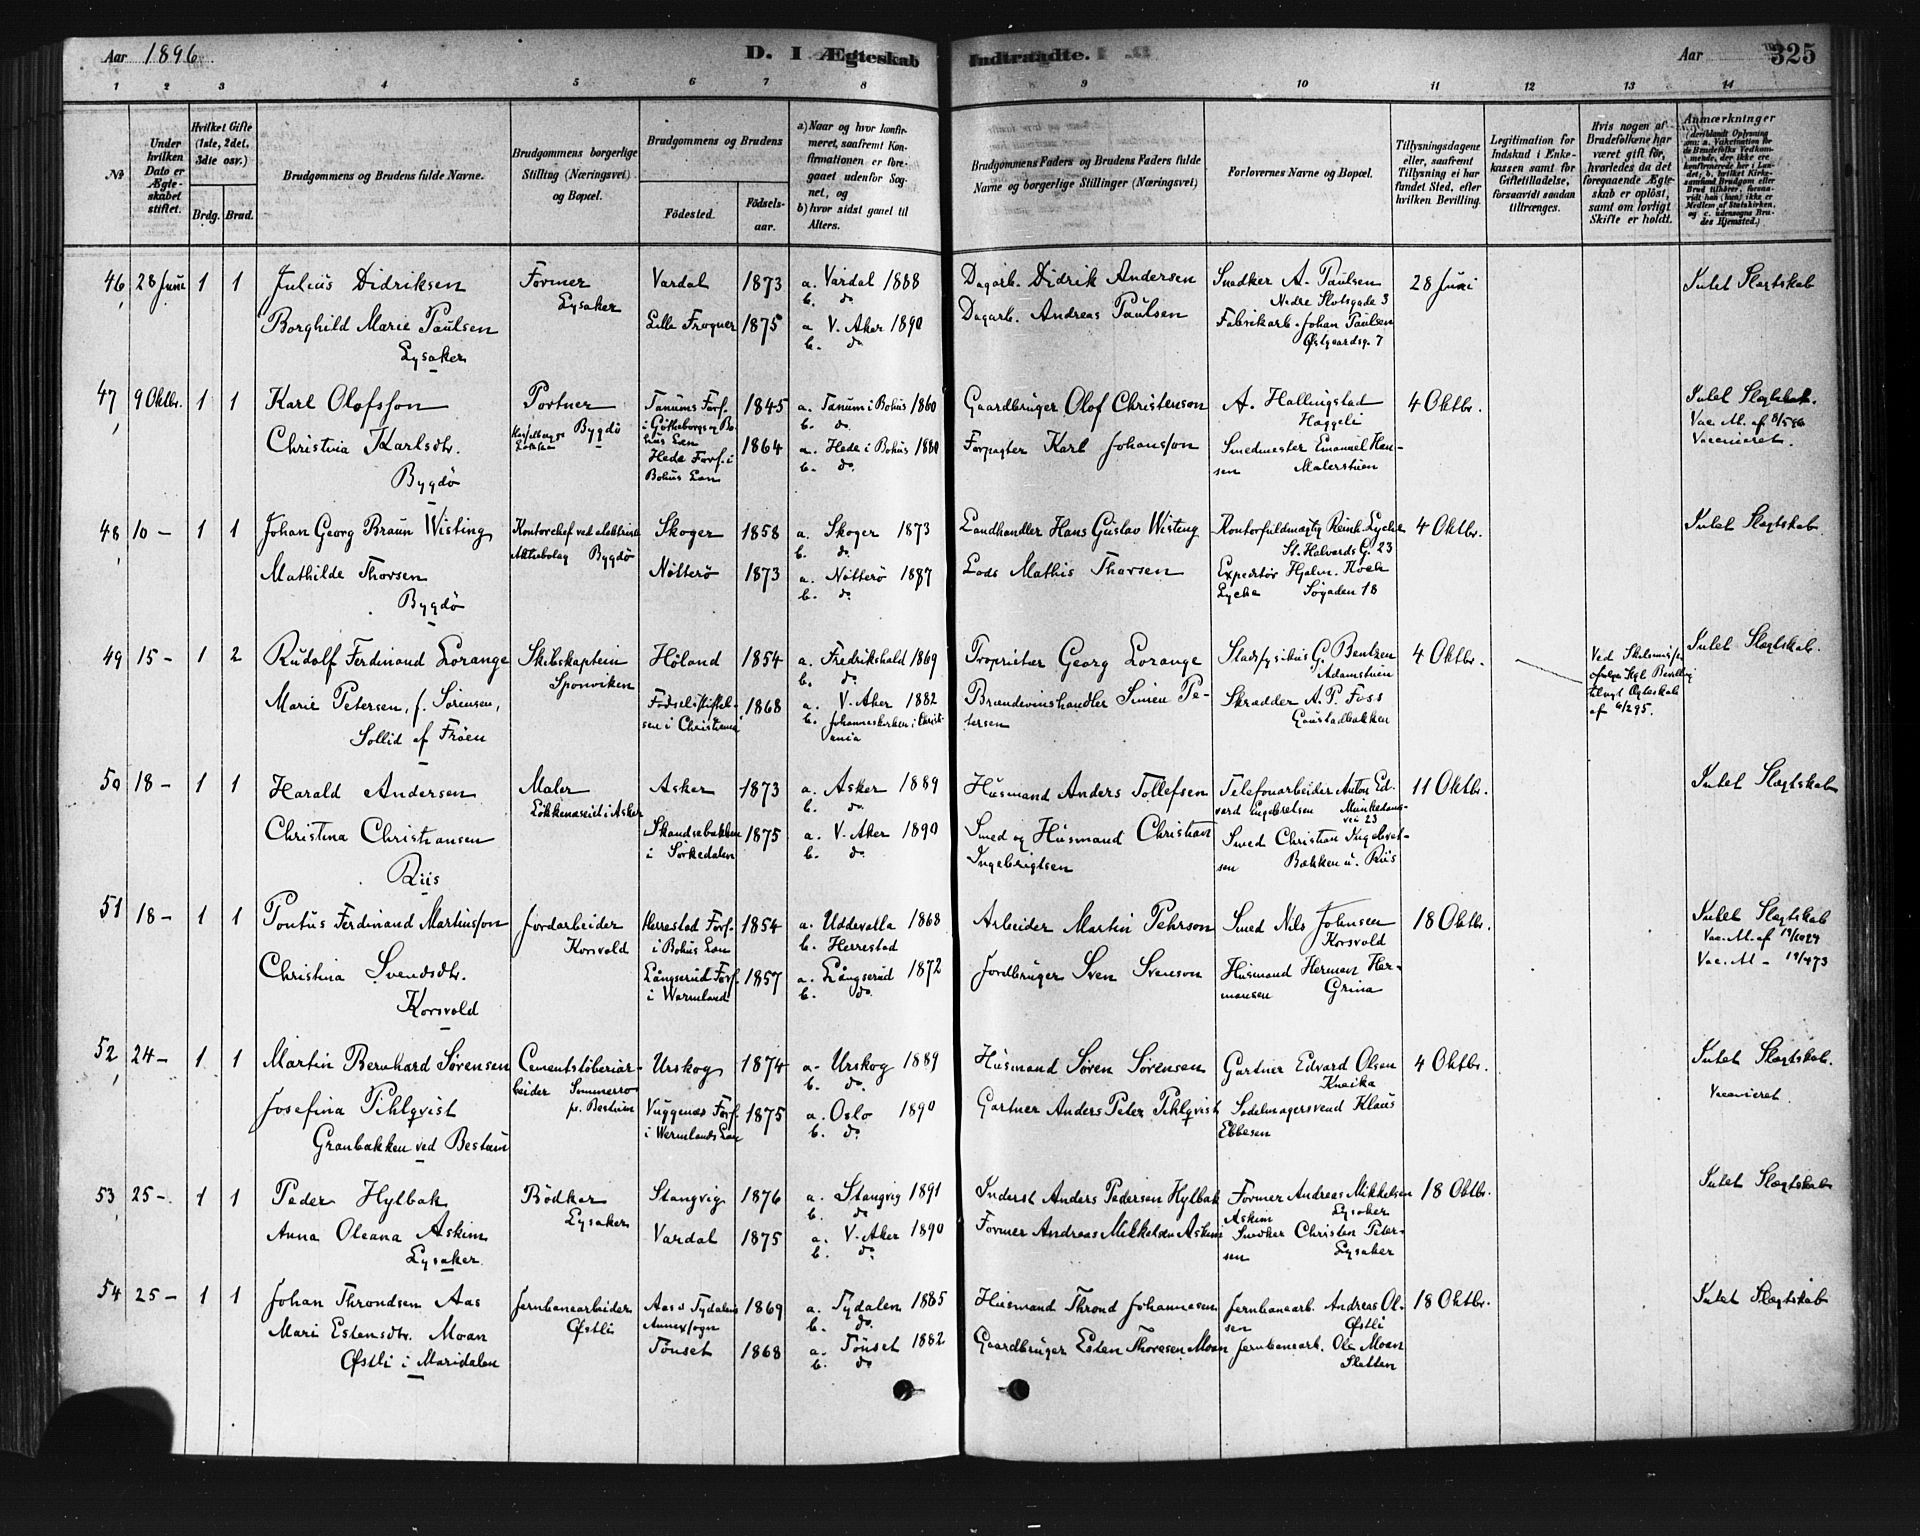 Aar 1896
D. I Ægteskab Indtraadte.
Aar 325
1 2 3 4 5 6 7 8 9 10 11 12 13 14
No
Under hvilken Dato er Ægteskabet stiftet.
Hvilket Gifte (1ste, 2det, 3die osv.)
Brdg. Brud.
Brudgommens og Brudens fulde Navne.
Brudgommens borgerlige Stilling (Næringsvei) og Bopæl.
Brudgommens og Brudens
Fødested. Fødselsaar.
a) Naar og hvor konfirmeret, saafremt Konfirmationen er foregaaet udenfor Sognet, og
b) hvor sidst gaaet til Alters.
Brudgommens Faders og Brudens Faders fulde Navne og borgerlige Stillinger (Næringsvei)
Forlovernes Navne og Bopæl.
Tillysningsdagene eller, saafremt Tillysning ei har fundet Sted, efter hvilken Bevilling.
Legitimation for Indskud i Enkekassen samt for Giftetilladelse, forsaavidt saadan tiltrænges.
Hvis nogen af Brudefolkene har været gift før, hvorledes da det foregaaende Ægteskab er opløst, samt om lovligt Skifte er holdt.
Anmærkninger
46 28 Juni 1 1 Julius Didriksen Former Lysaker Vardal 1873 a. Vardal 1888 b. do. Dagarb. Didrik Andersen Snedker A. Paulsen Nedre Slotsgade 3 28 Juni Intet Slægtskab
Borghild Marie Paulsen Lysaker Lille Frogner 1875 a V. Aker 1890 b. do Dagarb. Andreas Paulsen Fabrikarb. Johan Paulsen Østgaardsg. 7
47 9 Oktbr. 1 1 Karl Olofsson Portner Bygdö Tanums Fors. i Götheborgs og Bohus Lan 1845 a. Tanum i Bohus 1860 b. do. Gaardbruger Olof Christenson A. Hallingstad Haggeli 4 Oktbr. Intet Slægtskab. Vac. M. af 8/5 96
Christina Karlsdtr. Bygdö Hede Fors. i Bohus Lan 1864 a. Hede i Bohus 1880 b. do. Forpagter Karl Johansson Smedmester Emanuel Hansen Malerstuen Vaccineret.
48 10 - 1 1 Johan Georg Braun Wisting Kontorchef ved elektrisk Aktiebolag Bygdö Skoger 1858 a. Skoger 1873 b. do. Landhandler Hans Gustav Wisting Kontorfuldmægtig Reinh. Lyche St. Halvards G. 23 4 Oktbr. Intet Slægtskab
Mathilde Thorsen Bygdö Nötterö 1873 a. Nötterö 1887 b. do. Lods Mathis Thorsen Expeditör Hjalm. Koch Lyche Søgaden 18
49 15 - 1 2 Rudolf Ferdinand Lorange Skibskaptein Sponviken Höland 1854 a. Fredrikshald 1869 b. do. Proprietær Georg Lorange Stadsfysikus G. Bentzen Adamstuen 4 Oktbr. Ved Skilsmisse ifølge Kgl. Bevilling til nyt Ægteskab af 6/2 95. Intet Slægtskab.
Marie Petersen, f. Sörensen, Sollid af Fröen Födselsstiftelsen i Christiania 1868 a. V. Aker 1882 b. Johanneskirken i Christiania Brændevinshandler Simen Petersen Skrædder A. P. Foss Gaustadbakken
50 18 - 1 1 Harald Andersen Maler Løkkenæseiet i Asker Asker 1873 a. Asker 1889 b. do. Husmand Anders Tollefsen Telefonarbeider Anton Edvard Engebretsen Munkedamsvei 23 11 Oktbr. Intet Slægtskab
Christina Christiansen Riis Skandsebakken i Sörkedalen 1875 a. V. Aker 1890 b. do. Smed og Husmand Christian Ingebrigtsen Smed Christian Ingebretsen Bækken u. Riis
51 18 - 1 1 Pontus Ferdinand Martinsson Jordarbeider Korsvold Herrestad Fors. i Bohus Lan 1854 a. Uddevalla 1868 b. Herrestad Arbeider Martin Pehrson Smed Nils Johnsen Korsvold 18 Oktbr. Intet Slægtskab
Christina Svendsdtr. Korsvold Långserud Fors. i Warmland 1857 a. Långserud 1872 b. do. Jordbruger Sven Svenson Husmand Herman Hermansen Grina Vac. M - 19/4 73
52 24 - 1 1 Martin Bernhard Sørensen Cementstöberiarbeider Sommerro pr. Bestum Urskog 1874 a. Urskog 1889 b. do. Husmand Søren Sörensen Gartner Edvard Olsen Kneika 4 Oktbr. Intet Slægtskab.
Josefina Pihlqvist Granbakken ved Bestum Vuggenæs Fors. i Wermlands Lan 1875 a. Oslo 1890 b. do. Gartner Anders Peter Pihlqvist Sadelmagersvend Klaus Ebbesen Vaccineret.
53 25 - 1 1 Peder Hylbak Bödker Lysaker Stangvig 1876 a. Stangvig 1891 b. do. Inderst Anders Pedersen Hylbak Former Andreas Mikkelsen Askim Lysaker 18 Oktbr. Intet Slægtskab
Anna Oleana Askim Lysaker. Vardal 1875 a. V. Aker 1890 b. do. Former Andreas Mikkelsen Askim Snedker Christen Petersen Lysaker
54 25 - 1 1 Johan Throndsen Aas Jernbanearbeider Østli Aas i Tydalens Annexsogn 1869 a. Tydalen 1885 b. do. Husmand Thrond Johannesen Jernbanearb. Andreas Olsen Østli 18 Oktbr. Intet Slægtskab
Mari Estensdtr. Moan Østli i Maridalen Tönset 1868 a. Tönset 1882 b. do Gaardbruger Esten Thoresen Moan Jernbanearb. Ole Moan Sletten